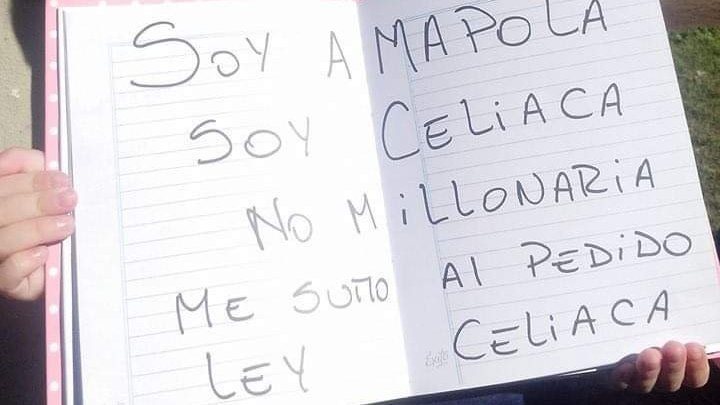 SOY AMAPOLA
SOY CELiACA
NO MiLLONARiA
ME SUMO Al PEDiDO
LEY CELiACA